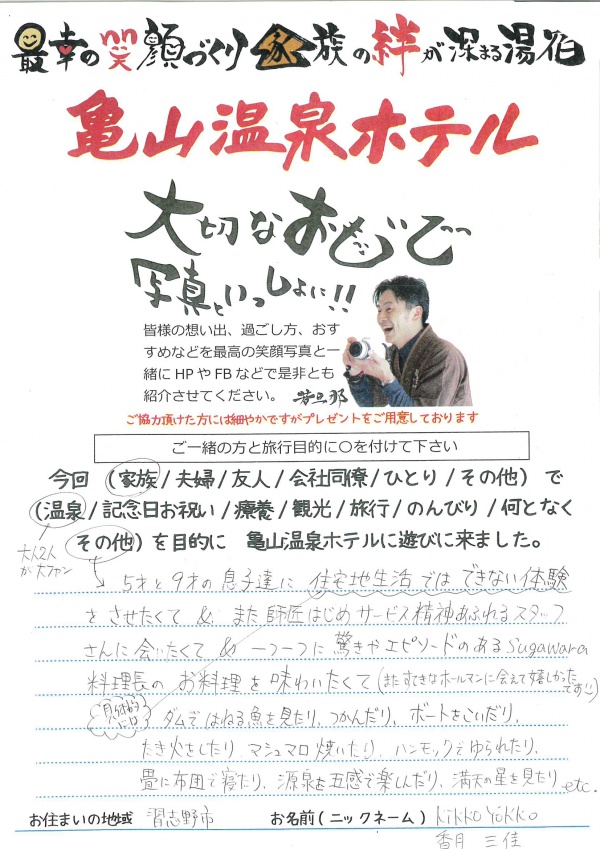 最幸の笑顔づくり 家族の絆が深まる湯宿
亀山温泉ホテル
大切なおもいで
写真といっしょに!!
皆様の想い出、過ごし方、おす
すめなどを最高の笑顔写真と一
緒に HP や FB などで是非とも
紹介させてください。 若旦那
ご協力頂けた方には細やかですがプレゼントをご用意しております
ご一緒の方と旅行目的に〇を付けて下さい
今回 (家族/夫婦/友人/会社同僚/ひとり/その他) で
(温泉/記念日お祝い/療養/観光/旅行/のんびり/何となく
その他) を目的に 亀山温泉ホテルに遊びに来ました。
大人2人
が大ファン
5才と9才の息子達に 住宅地生活ではできない体験
をさせたくて & また師匠はじめサービス精神あふれるスタッフ
さんに会いたくて & 一つ一つに驚きやエピソードのあるSugawara
料理長の お料理を味わいたくて(またすてきなホールマンに会えて嬉しかった
です!!)
具体的
には
ダムではねる魚を見たり、つかんだり、ボートをこいだり、
たき火をしたり、マシュマロ焼いたり、ハンモックでゆられたり、
畳に布団で寝たり、源泉を五感で楽しんだり、満天の星を見たり etc.
お住まいの地域 習志野市 お名前(ニックネーム) kikko yokko
香月 三佳